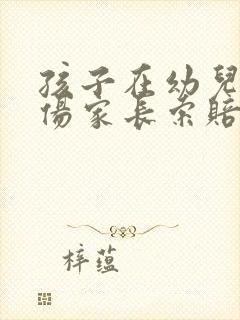 孩子在幼兒
傷家長索賠
梓蕴